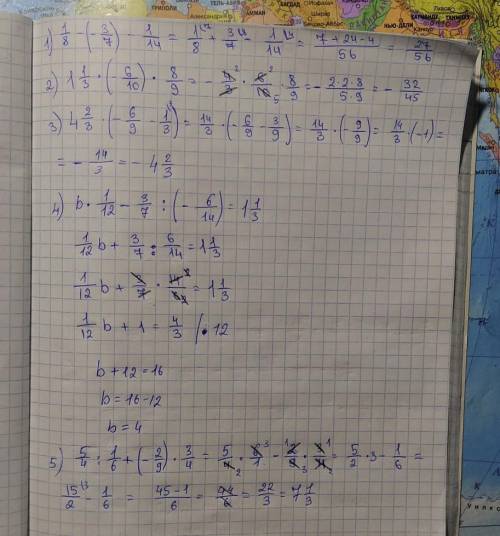 ТРИПОЛИ
Александрия
НЬЮ-ДЕЛИ
1) 1/8 - (-3/7) - 1/14 = 1/8 + 3/7 - 1/14 = (7+24-4)/56 = 27/56
2) 1 1/3 · (-6/10) · 8/9 = - 4/3 · 6/10 · 8/9 = - (2·2·8)/(5·9) = - 32/45
3) 4 2/3 · (-6/9 - 1/3) = 14/3 · (-6/9 - 3/9) = 14/3 · (-9/9) = 14/3 · (-1) =
= - 14/3 = - 4 2/3
4) b · 1/12 - 3/7 : (-6/14) = 1 1/3
1/12 b + 3/7 : 6/14 = 1 1/3
1/12 b + 3/7 · 14/6 = 1 1/3
1/12 b + 1 = 4/3 /· 12
b + 12 = 16
b = 16 - 12
b = 4
5) 5/4 : 1/6 + (-2/9) · 3/4 = 5/4 · 6/1 - 2/9 · 3/4 = 5/2 · 3 - 1/6 =
15/2 - 1/6 = (45-1)/6 = 44/6 = 22/3 = 7 1/3